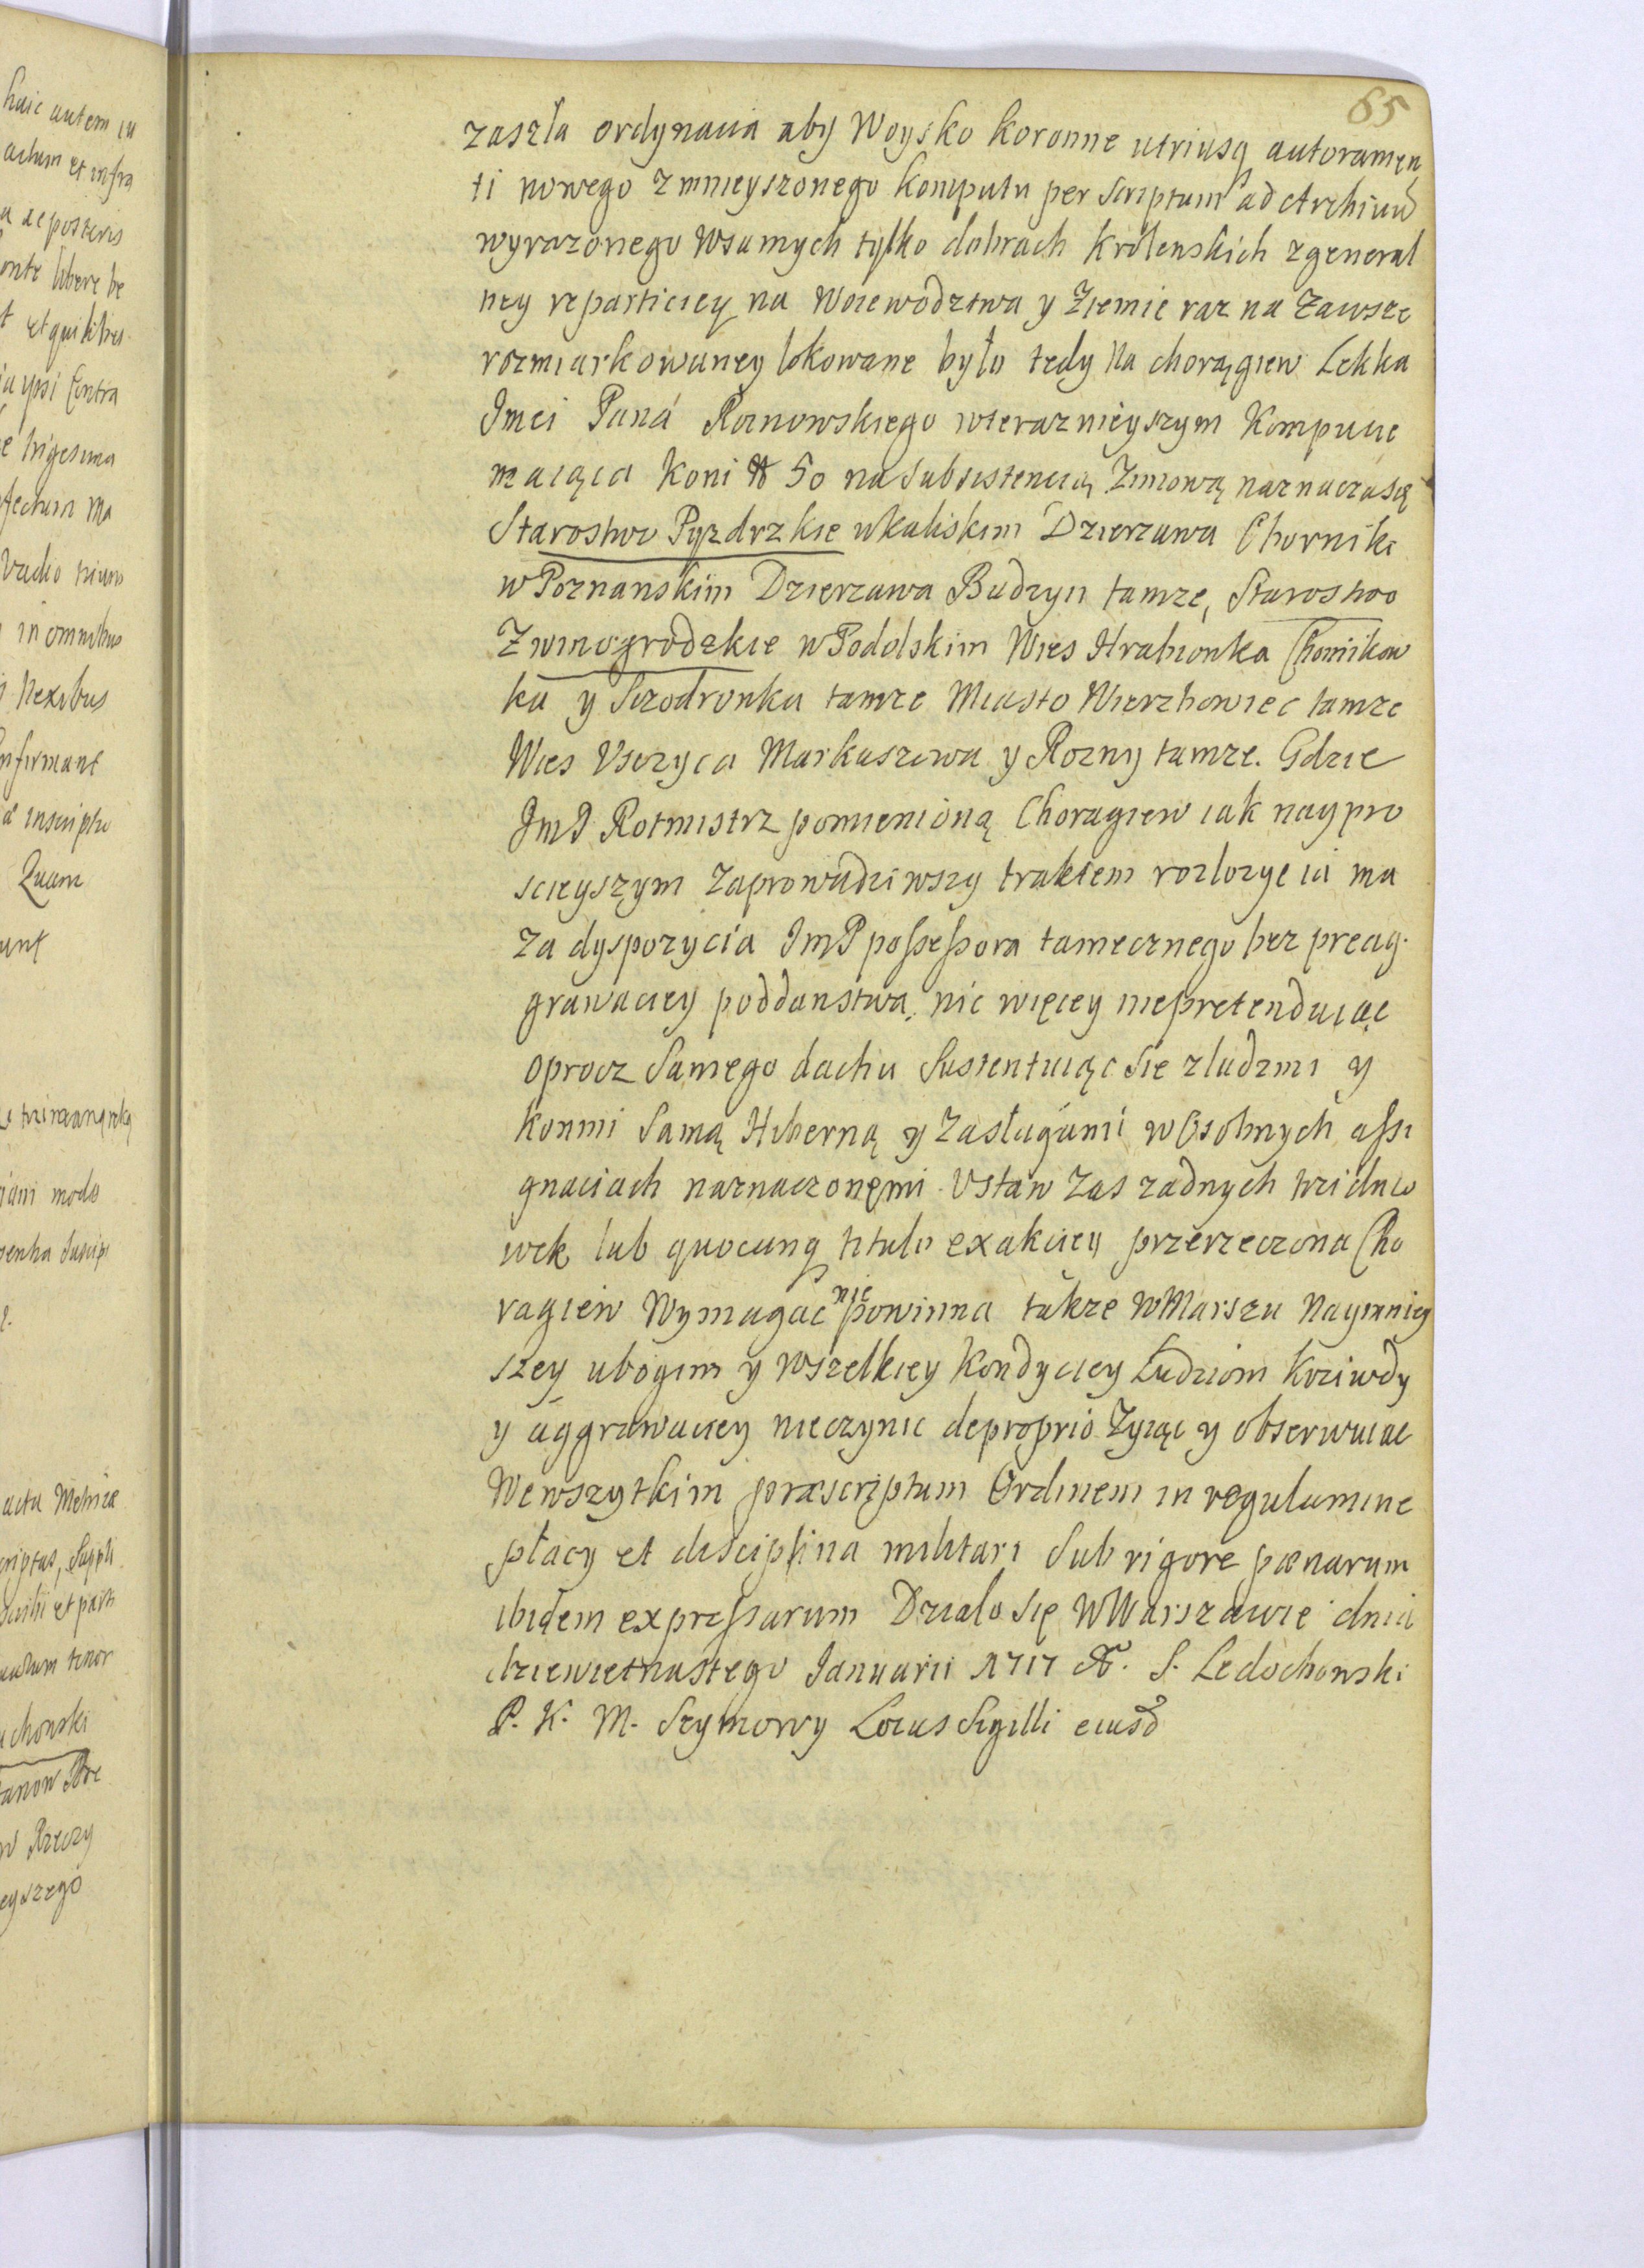 65
zaszła ordynacia aby Woysko koronne utriusq autoramen
ti nowego zmnieyszonego komputu per Scriptum ad Archiuu
wyrazonego wsamych tylko dobrach krolewskich zgeneral
ney reparticiey na Woiewodztwa y Ziemie raz na Zawsze
rozmiarkowaney lokowane było tedy na chorągiew Lekka
Jmci Paná Roznowskiego wteraznieyszym Kompucie
maiąca Koni N 50 na Subsistencią Zimową naznacza się
Starostwo Pyzdrzkie wkaliskim Dzierzawa Chorniki
w Poznanskim Dzierzawa Budzyn tamze, Starostwo
Zwinogrodzkie w Podolskim Wies Hrabionka Chomikow
ka y Szodronka tamze Miasto Wierzbowiec tamze
Wies Vszyca Markuszowa y Rozny tamze. Gdzie
JmP Rotmistrz pomienioną Choragiew iak naypro
scieyszym zaprowadziwszy traktem rozlozyc ią ma
za dyspozycia JmP possessora tamecznego bez preag-
grawaciey poddanstwa, nic więcey niepretenduiąc
oprocz Samego dachu Sustentuiąc Sie zludzmi y
konmi Samą Hiberną y Zasługámi w Osobnych assi
gnaciach naznaczonemi Vstaw zas zadnych tridnio
wek lub quocunq titulo exakciey przerzeczona Cho
ragiew Wymagac nie powinna takze w Marszu Naymniey
szey ubogim y wszelkiey Kondyciey Ludziom Krziwdy
y aggrawaciey nieczynic de proprio Zyiąc y obserwuiac
Wewszytkim præscriptum Ordinem in regulamine
płacy et disciplina militari Sub rigore pœnarum
ibidem expressarum Działo się w Warszawie dnia
dziewietnastego Januarii 1717 A. S. Ledochowski
P. K. M. Seymowy Locus Sigilli eiusd